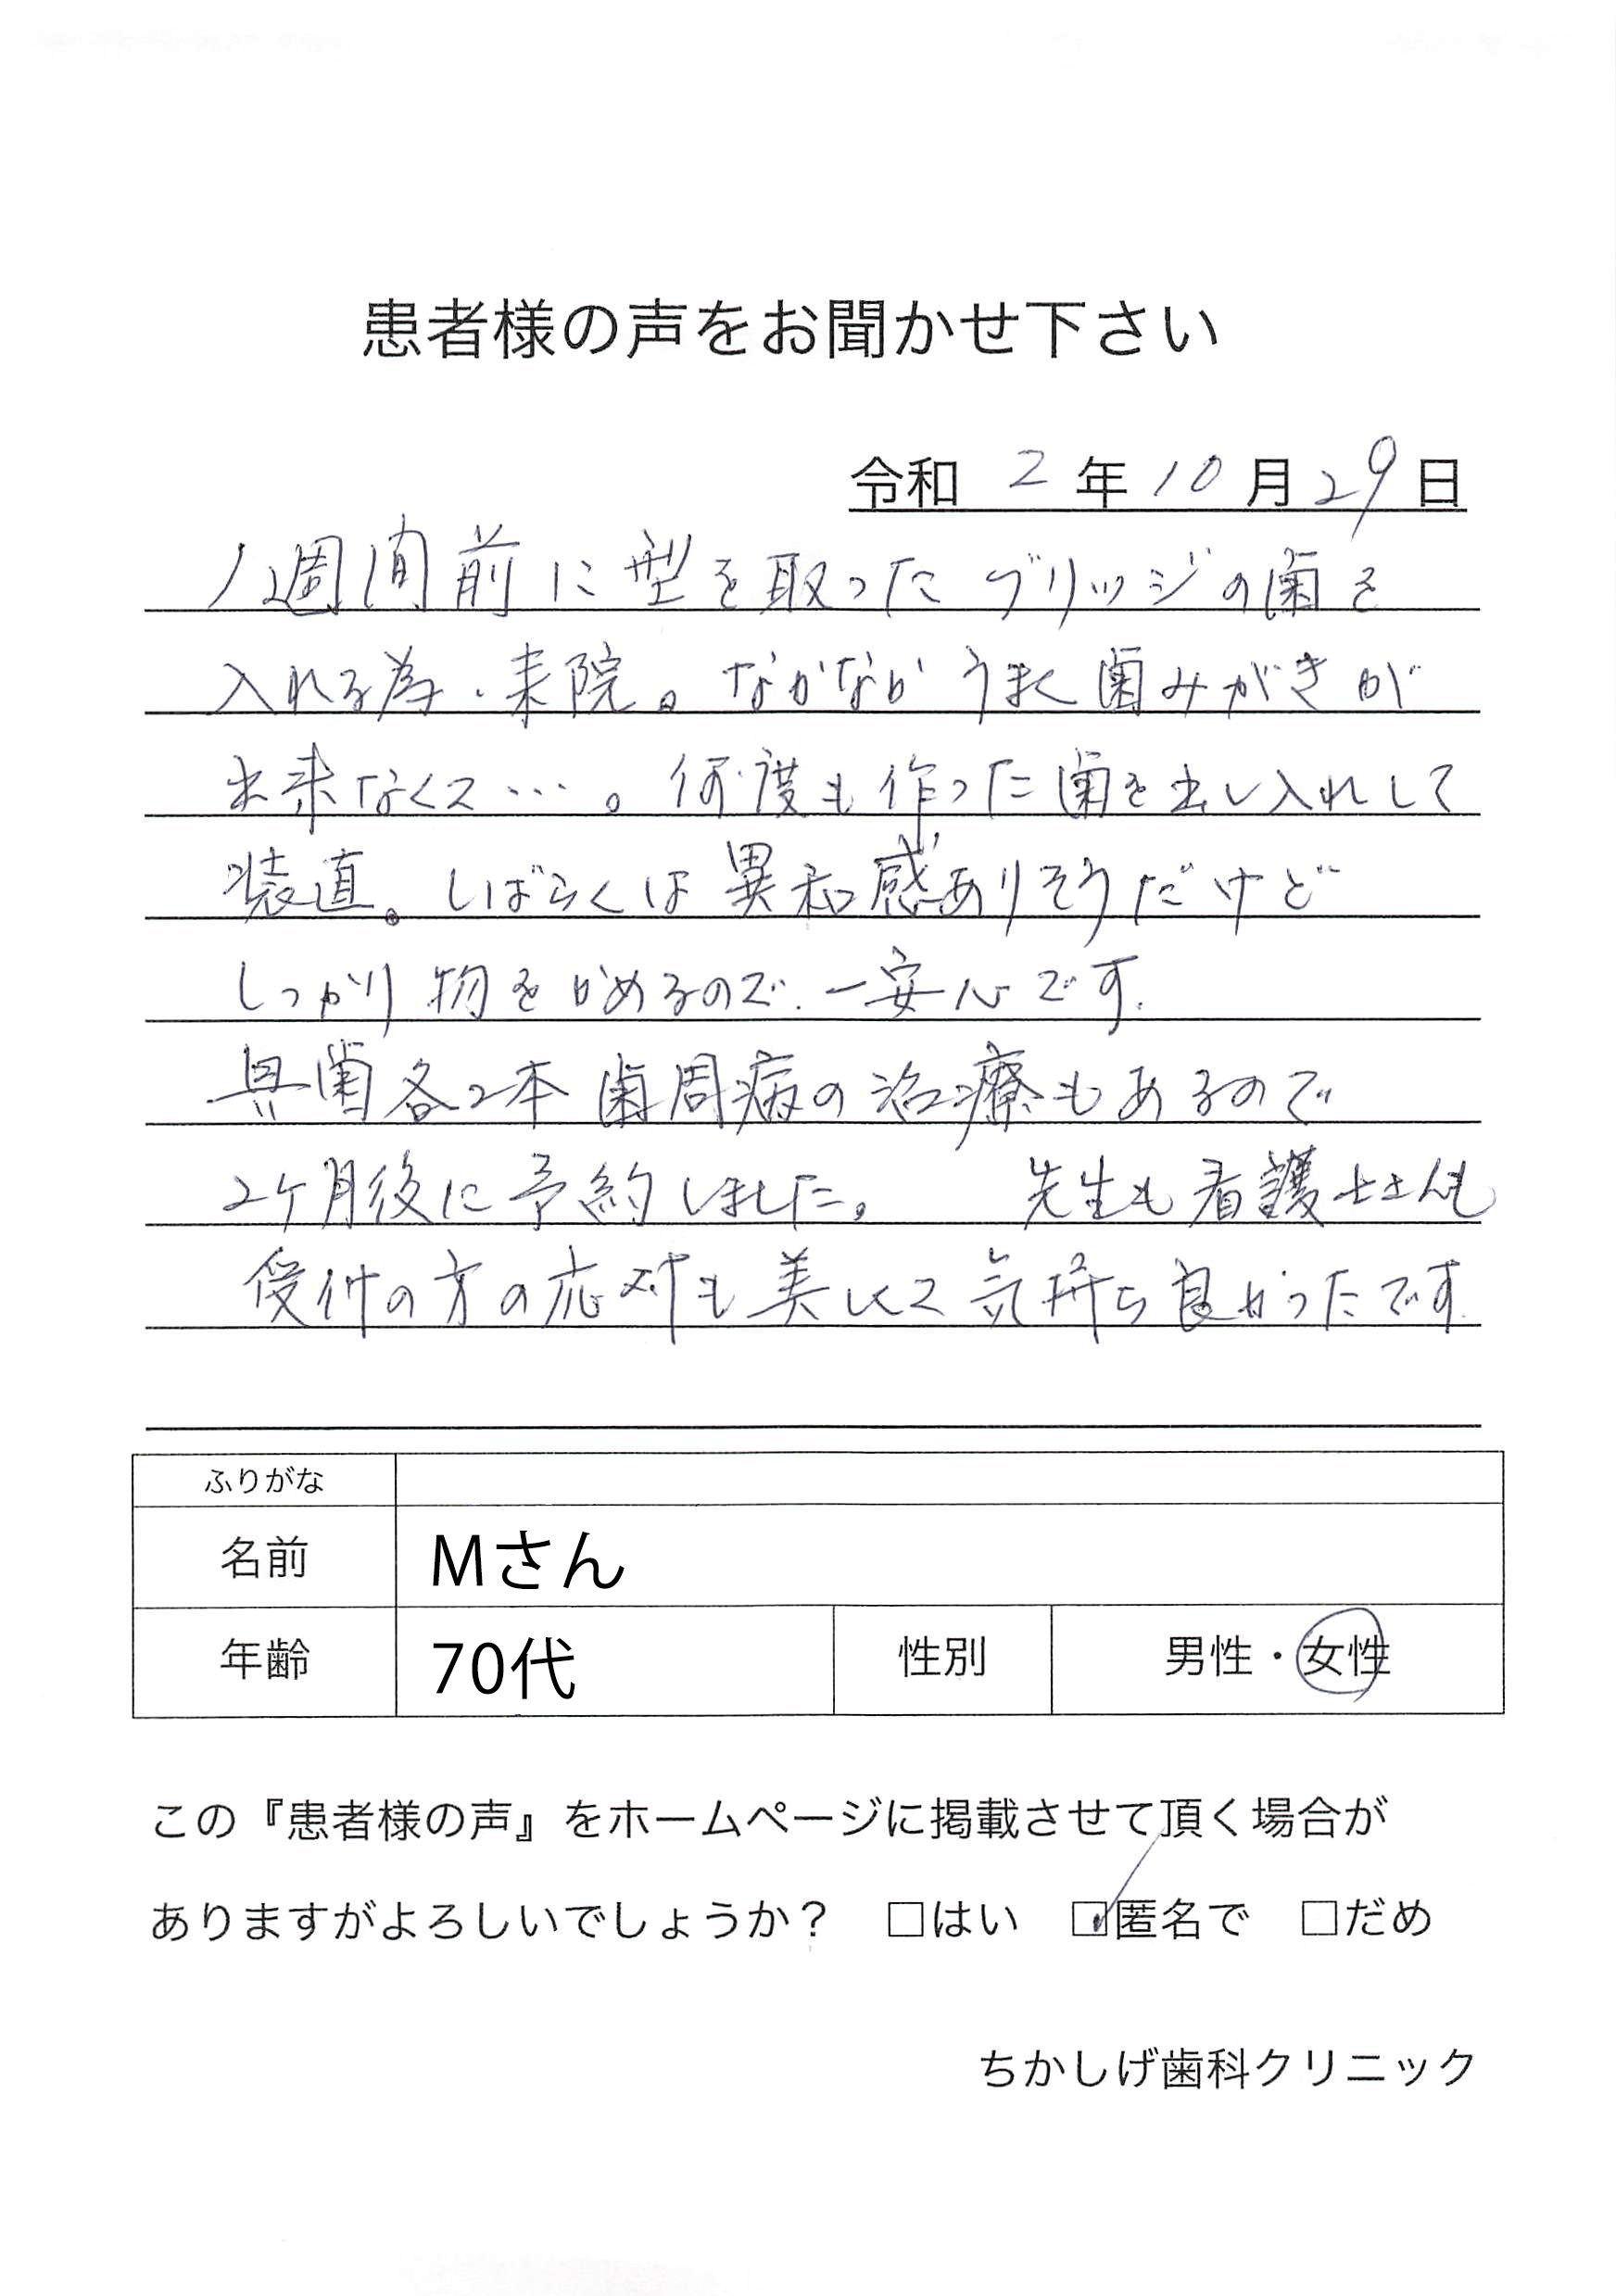 患者様の声をお聞かせ下さい
令和 2 年 10 月 29 日
1週間前に型を取ったブリッジの歯を
入れる為、来院。なかなかうまく歯みがきが
出来なくて…。何度も作った歯を出し入れして
装直。しばらくは異和感ありそうだけど
しっかり物をかめるので、一安心です。
奥歯各2本歯周病の治療もあるので
2ヶ月後に予約しました。 先生も看護士さんも
受付の方の応対も美しくて気持ち良かったです。
ふりがな
名前 Mさん
年齢 70代 性別 男性・女性
この『患者様の声』をホームページに掲載させて頂く場合が
ありますがよろしいでしょうか？ □はい ☑匿名で □だめ
ちかしげ歯科クリニック